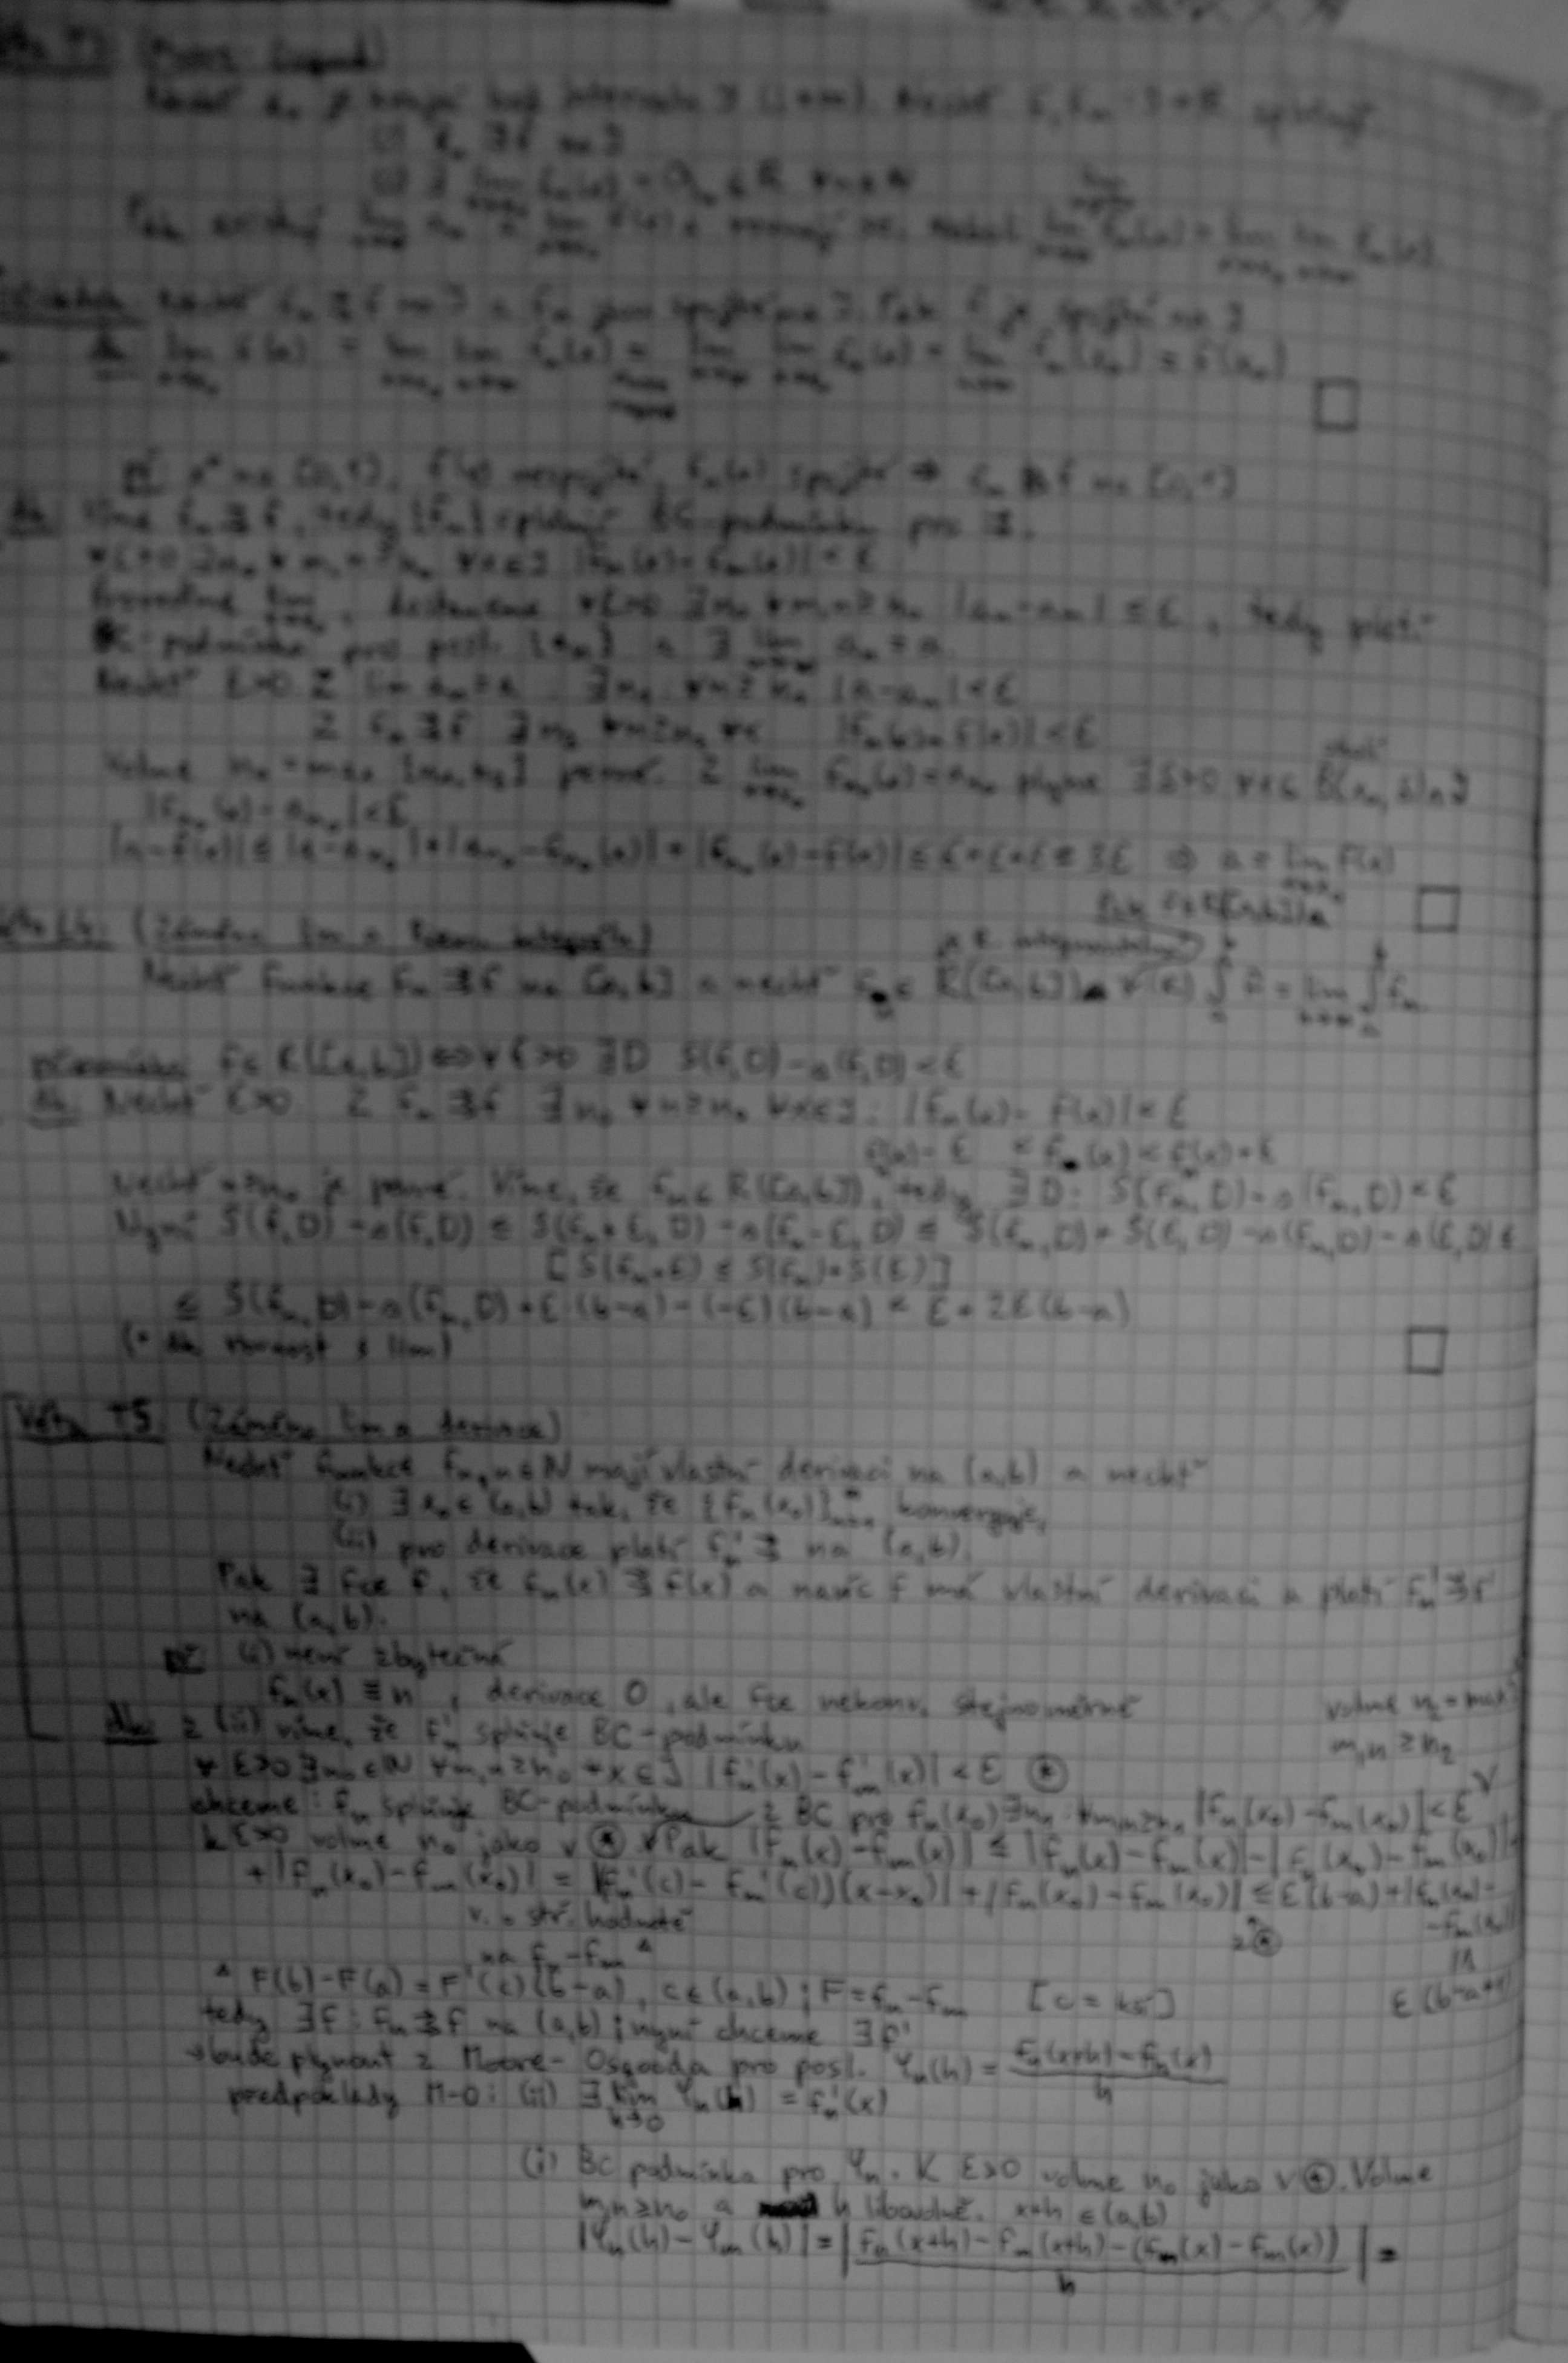 Nechť x₀ je krajní bod intervalu J (i ±∞). Nechť f, fₙ : J → ℝ splňují
(i) fₙ ⇉ f na J
(ii) ∃ lim fₙ(x) = aₙ ∈ ℝ ∀n∈ℕ
Pak existují lim aₙ a lim f(x) a rovnají se, neboli lim lim fₙ(x) = lim lim fₙ(x)
Nechť fₙ ⇉ f na J a fₙ jsou spojité na J. Pak f je spojitá na J
Dk: lim f(x) = lim lim fₙ(x) = lim lim fₙ(x) = lim fₙ(x₀) = f(x₀)
Př: xⁿ na [0,1], f(x) nespojitá, fₙ(x) spojité ⇒ fₙ ⇉̸ f na [0,1]
Dk: Víme fₙ ⇉ f, tedy {fₙ} splňují BC-podmínku pro ⇉.
∀ε>0 ∃n₀ ∀m,n ≥ n₀ ∀x∈J |fₙ(x) - fₘ(x)| < ε
Provedme lim, dostaneme ∀ε>0 ∃n₀ ∀m,n ≥ n₀ |aₙ - aₘ| ≤ ε, tedy platí
BC-podmínka pro posl. {aₙ} a ∃ lim aₙ = a.
Nechť ε>0. Z lim aₙ = a ∃n₁ ∀n ≥ n₁ |a - aₙ| < ε
Z fₙ ⇉ f ∃n₂ ∀n ≥ n₂ ∀x |fₙ(x) - f(x)| < ε
Volme n₀ = max {n₁, n₂} pevné. Z lim fₙ₀(x) = aₙ₀ plyne ∃δ>0 ∀x∈ B(x₀, δ)∩J
|fₙ₀(x) - aₙ₀| < ε
|a - f(x)| ≤ |a - aₙ₀| + |aₙ₀ - fₙ₀(x)| + |fₙ₀(x) - f(x)| ≤ ε + ε + ε = 3ε ⇒ a = lim f(x)
(Záměna lim a Riem. integrálu)
Nechť funkce fₙ ⇉ f na [a,b] a nechť fₙ ∈ R([a,b]) (R) ∫ f = lim ∫ fₙ
f ∈ R([a,b]) ⇔ ∀ε>0 ∃D S(f,D) - s(f,D) < ε
Dk: Nechť ε>0 Z fₙ ⇉ f ∃n₀ ∀n ≥ n₀ ∀x∈J : |fₙ(x) - f(x)| < ε
f(x) - ε < fₙ(x) < f(x) + ε
Nechť n ≥ n₀ je pevné. Víme, že fₙ ∈ R([a,b]), tedy ∃D: S(fₙ, D) - s(fₙ, D) < ε
Nyní S(f,D) - s(f,D) ≤ S(fₙ+ε, D) - s(fₙ-ε, D) ≤ S(fₙ,D) + S(ε,D) - s(fₙ,D) - s(ε,D) ≤
[S(fₙ+ε) ≤ S(fₙ) + S(ε)]
≤ S(fₙ, D) - s(fₙ, D) + ε·(b-a) - (-ε)(b-a) < ε + 2ε(b-a)
(+ dk rovnost s lim)
Věta T5 (Záměna lim a derivace)
Nechť funkce fₙ, n∈ℕ mají vlastní derivaci na (a,b) a nechť
(i) ∃x₀ ∈ (a,b) tak, že {fₙ(x₀)}ₙ₌₁^∞ konverguje,
(ii) pro derivace platí fₙ' ⇉ na (a,b).
Pak ∃ fce f, že fₙ(x) ⇉ f(x) a navíc f má vlastní derivaci a platí fₙ' ⇉ f'
na (a,b).
Př: (i) není zbytečná
fₙ(x) ≡ n, derivace 0, ale fce nekonv. stejnoměrně
Dk: z (ii) víme, že fₙ' splňuje BC-podmínku
volme n₂ = max
m,n ≥ n₂
∀ε>0 ∃n₀∈ℕ ∀m,n ≥ n₀ ∀x∈J |fₙ'(x) - fₘ'(x)| < ε ⊛
chceme: fₙ splňuje BC-podmínku z BC pro fₙ(x₀) ∃n₁: ∀m,n ≥ n₁ |fₙ(x₀) - fₘ(x₀)| < ε
k ε>0 volme n₀ jako v ⊛. Pak |fₙ(x) - fₘ(x)| ≤ |fₙ(x) - fₘ(x)| - |fₙ(x₀) - fₘ(x₀)|
+ |fₙ(x₀) - fₘ(x₀)| = |(fₙ'(c) - fₘ'(c))(x-x₀)| + |fₙ(x₀) - fₘ(x₀)| ≤ ε(b-a) + |fₙ(x₀) -
- fₘ(x₀)|
v. o stř. hodnotě
z ⊛
na fₙ - fₘ △
△ F(b) - F(a) = F'(c)(b-a), c∈(a,b); F = fₙ - fₘ [c = ks]
ε(b-a+1)
tedy ∃f: fₙ ⇉ f na (a,b); nyní chceme ∃f'
→ bude plynout z Moore-Osgooda pro posl. Yₙ(h) = fₙ(x+h) - fₙ(x) / h
předpoklady M-O: (ii) ∃ lim h→0 Yₙ(h) = fₙ'(x)
(i) BC podmínka pro Yₙ. K ε>0 volme n₀ jako v ⊛. Volme
m,n ≥ n₀ a h libovolně. x+h ∈ (a,b)
|Yₙ(h) - Yₘ(h)| = | fₙ(x+h) - fₘ(x+h) - (fₙ(x) - fₘ(x)) / h | =